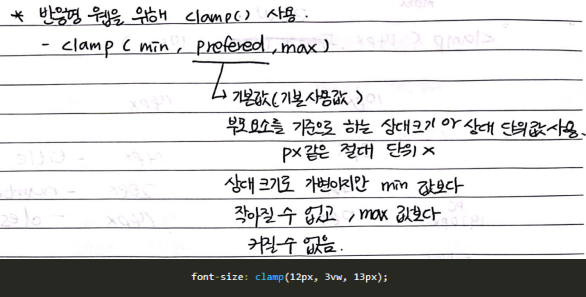 * 반응형 웹을 위해 clamp() 사용.
- clamp ( min, prefered, max )
기본값(기본사용값)
부모요소를 기준으로 하는 상대크기 or 상대 단위값 사용.
px같은 절대 단위 x
상대 크기로 가변이지만 min 값보다
작아질 수 없고, max 값보다
커질수 없음.
font-size: clamp(12px, 3vw, 13px);